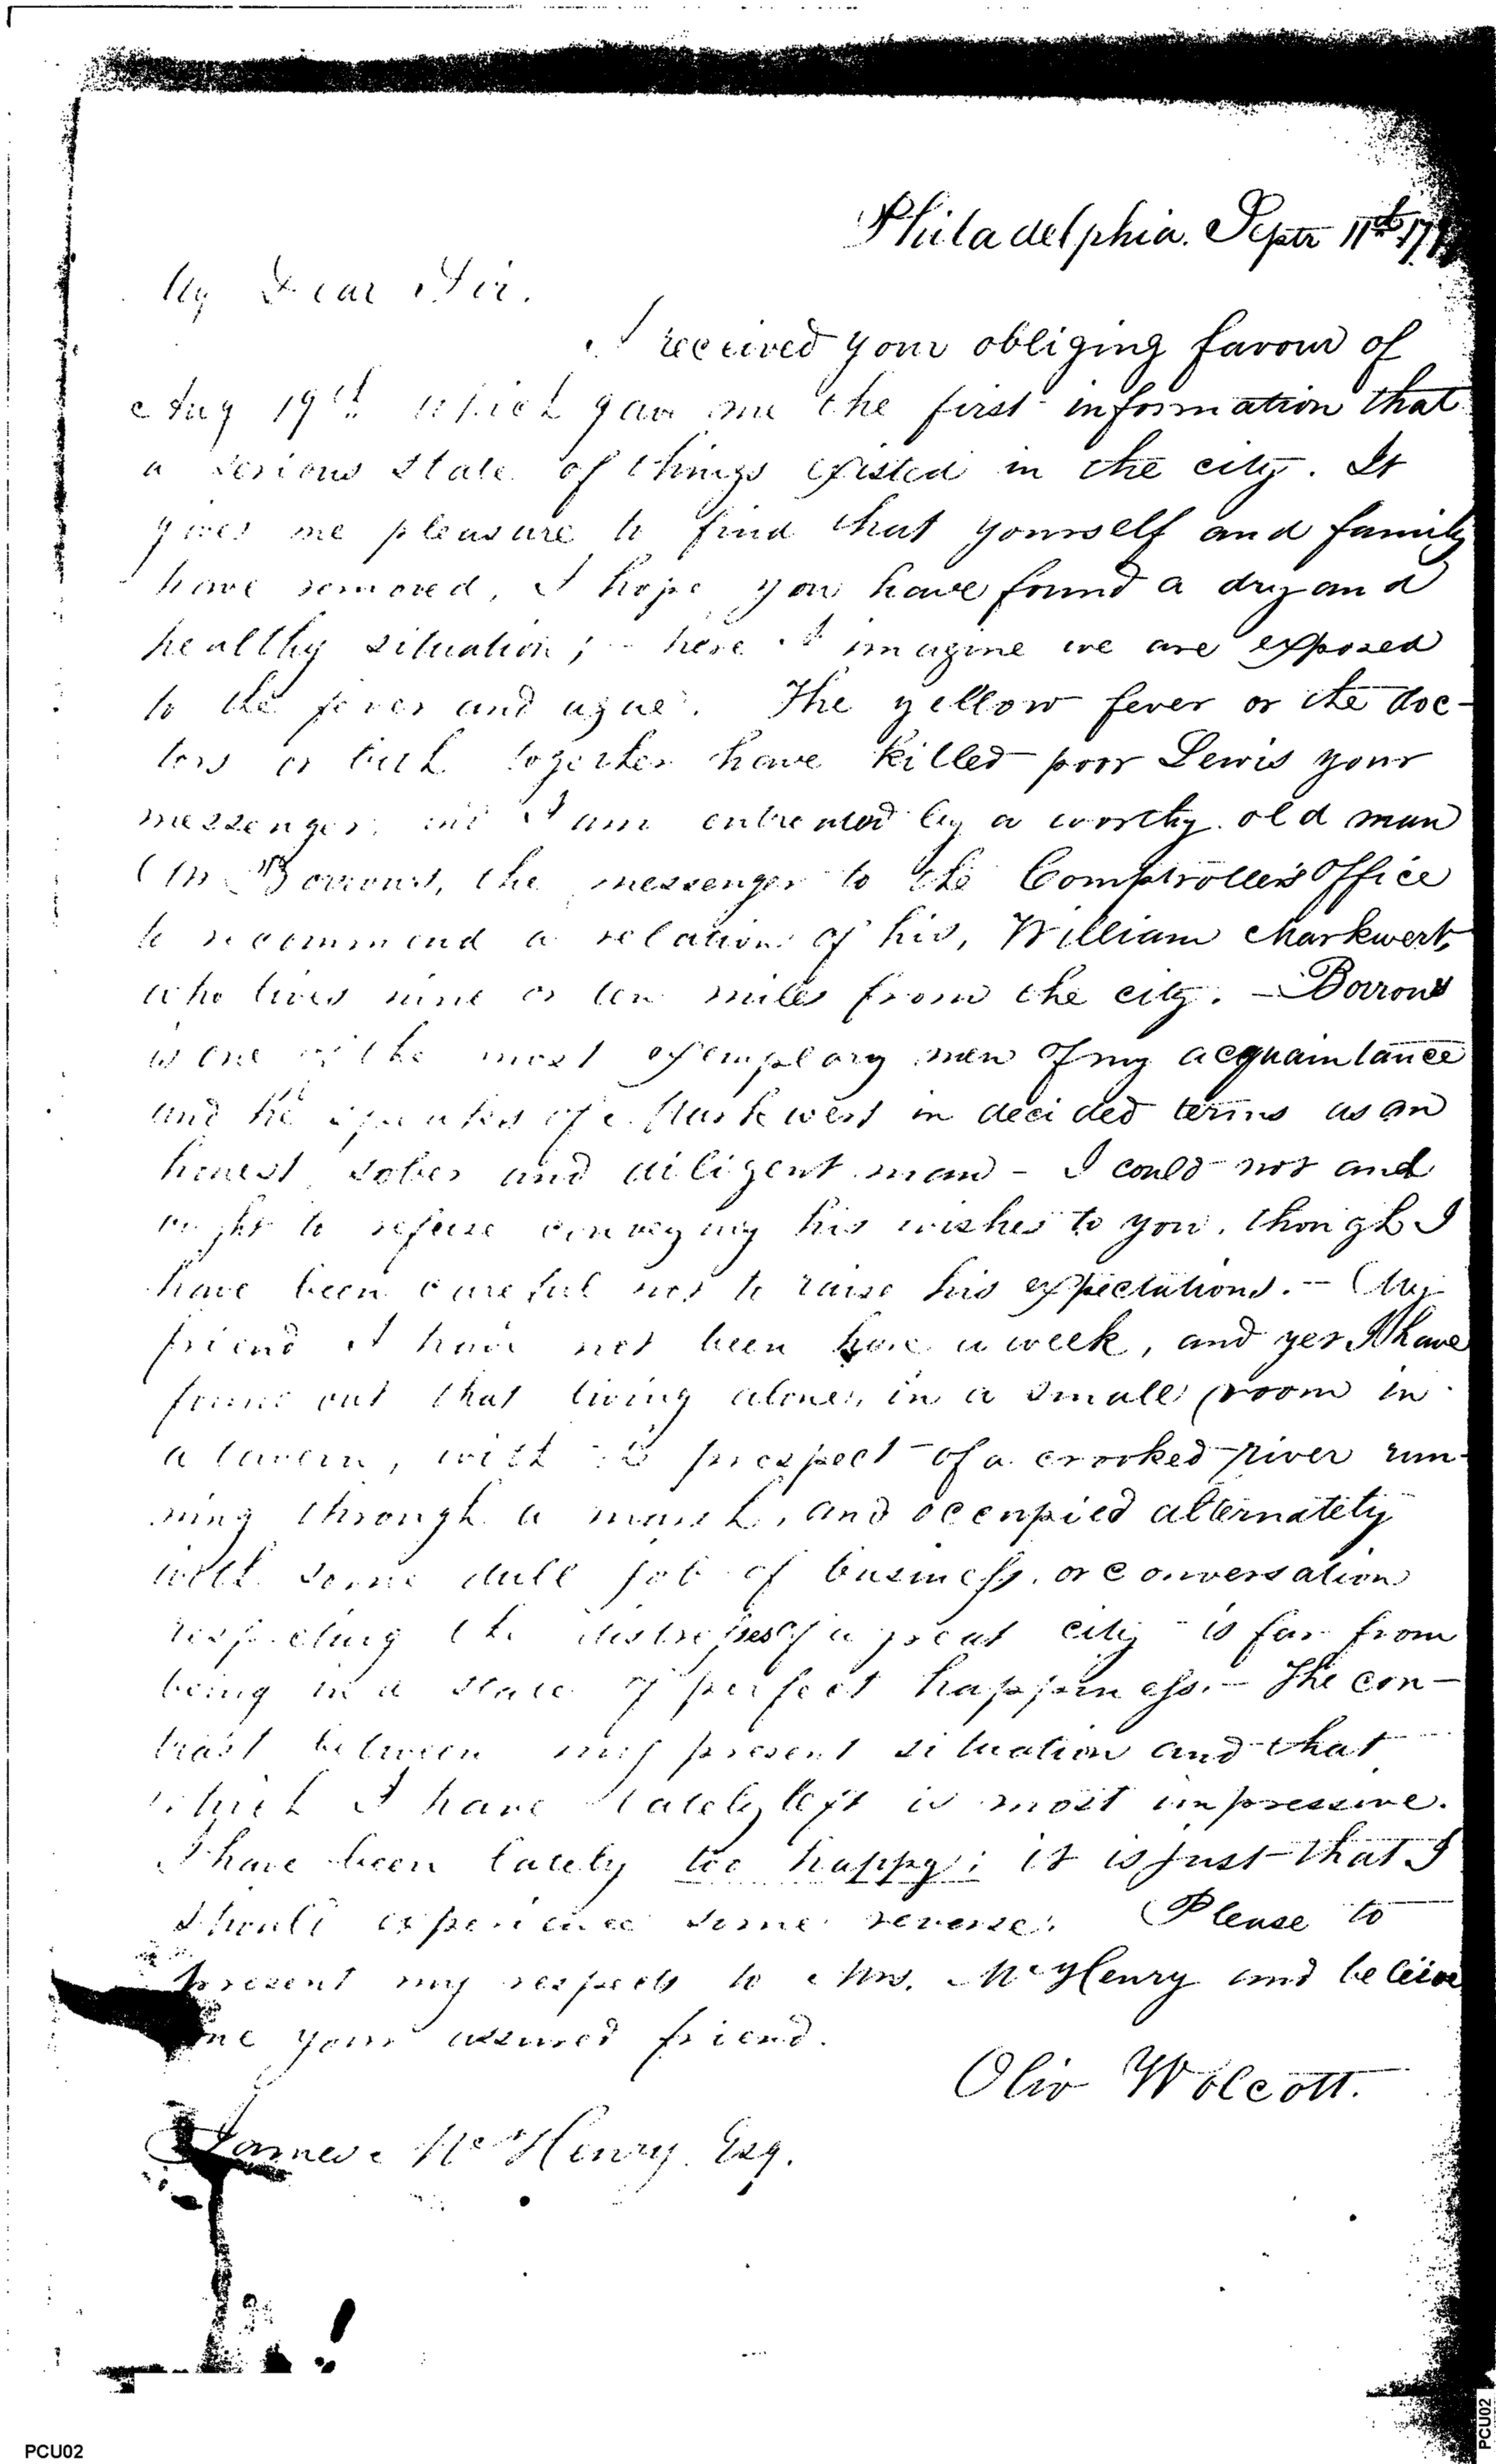 Philadelphia. Septr 11th 17
My Dear Sir.
I received your obliging favour of
Aug 19th which gave me the first information that
a serious state of things existed in the city. It
gives me pleasure to find that yourself and family
have removed, I hope you have found a dry and
healthy situation; - here I imagine we are exposed
to the fever and ague. The yellow fever or the doc-
tors or both together have killed poor Lewis your
messenger, and I am entreated by a worthy old man
Mr Borrows, the messenger to the Comptrollers Office
to recommend a relation of his, William Markwert,
who lives nine or ten miles from the city. - Borrows
is one of the most exemplary men of my acquaintance
and he speaks of Markwert in decided terms as an
honest sober and diligent man - I could not and
ought to refuse conveying his wishes to you, though I
have been careful not to raise his expectations. - My
friend I have not been here a week, and yet I have
found out that living alone, in a small room in
a tavern, with the prospect of a crooked river run-
ning through a marsh, and occupied alternately
with some dull job of business, or conversation
respecting the distresses of a great city is far from
being in a state of perfect happiness. - The con-
trast between my present situation and that
which I have lately left is most impressive.
I have been lately too happy; it is just that I
should experience some reverse. Please to
present my respects to Mrs. McHenry and believe
me your assured friend.
Oliv Wolcott.
James McHenry Esq.
PCU02
PCU02